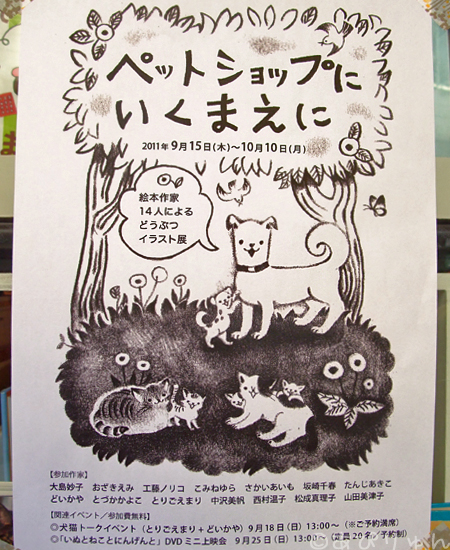 ペットショップに
いくまえに
2011年 9月15日(木)〜10月10日(月)
絵本作家
14人による
どうぶつ
イラスト展
【参加作家】
大島妙子 おざきえみ 工藤ノリコ こみねゆら さかいあいも 坂崎千春 たんじあきこ
どいかや とづかかよこ とりごえまり 中沢美帆 西村温子 松成真理子 山田美津子
【関連イベント／参加費無料】
◎犬猫トークイベント（とりごえまり＋どいかや） 9月18日（日）13:00〜（※ご予約満席）
◎「いぬとねことにんげんと」DVDミニ上映会 9月25日（日）13:00〜（定員20名／予約制）